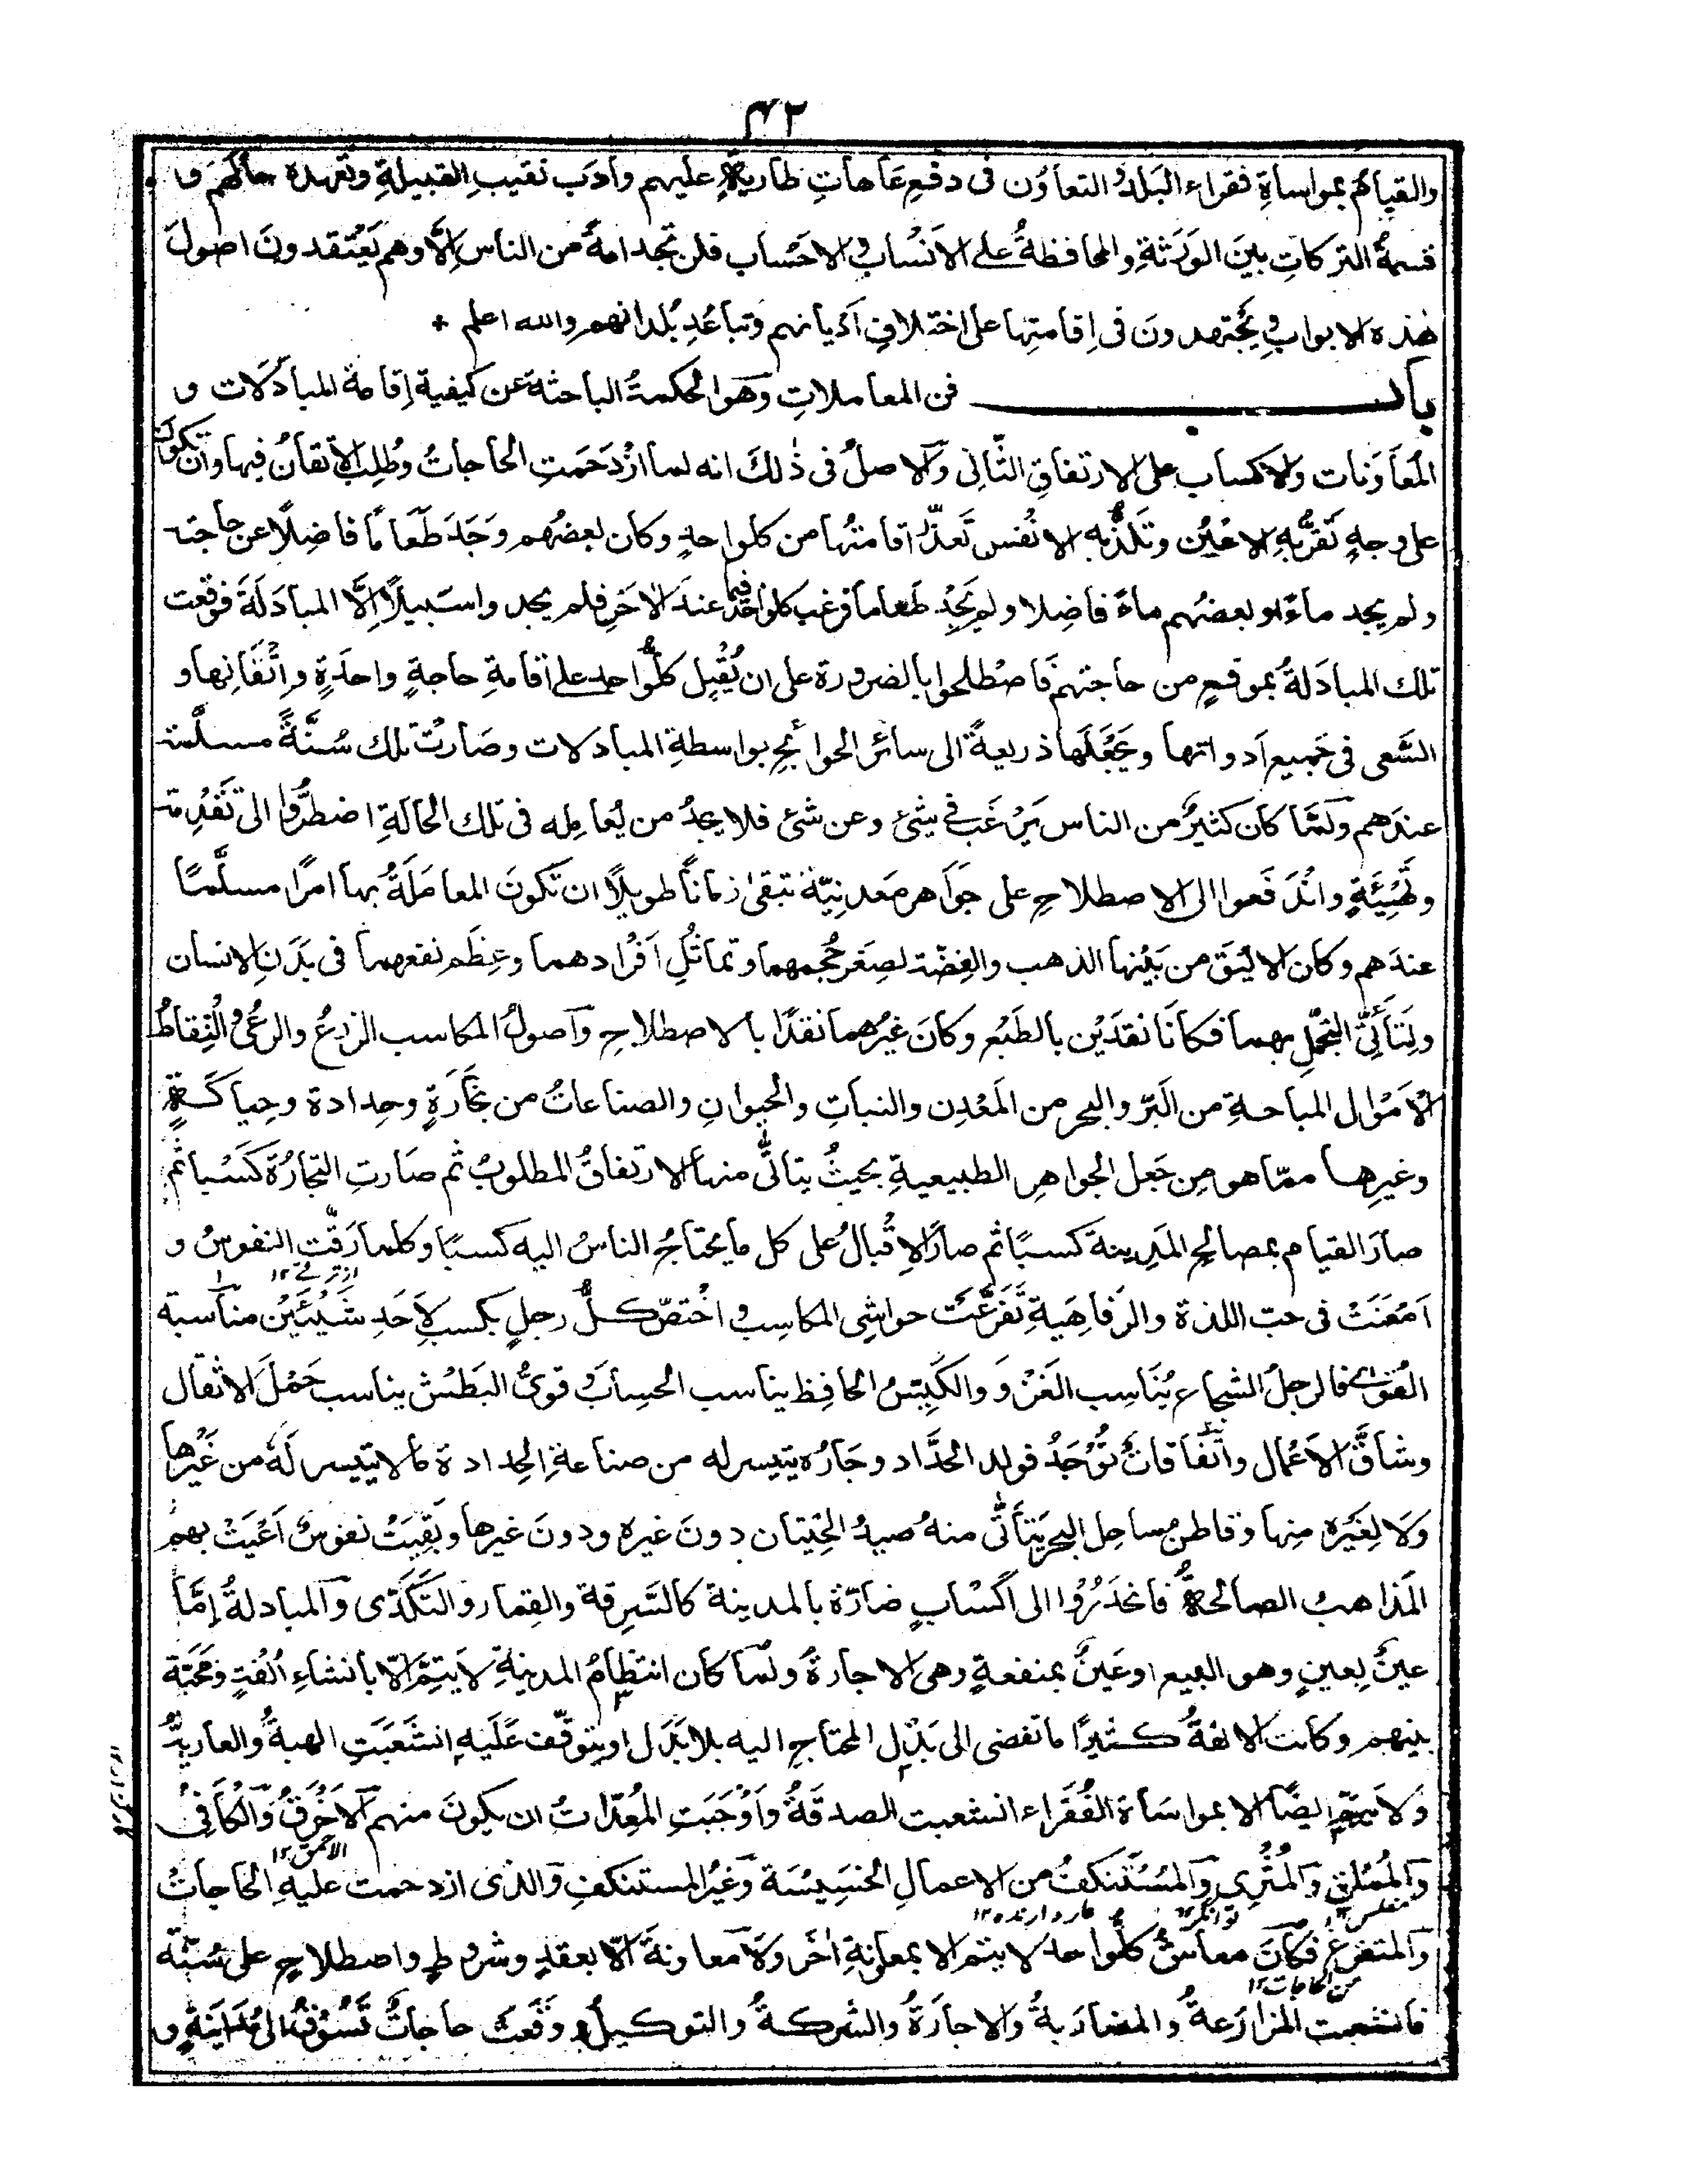 ٤٢
والقيام بمواساةِ فقراء البَلدِ و التعاوُن فى دفعِ عَاهاتٍ طاريةٍ عليهم وأدَب نقيبِ القبيلةِ وتعهده حالَهم و
قسمةُ التركاتِ بينَ الوَرَثةِ والمحافظةُ على الاَنْساب و الاحْساب فلن تجد امةً من الناس اِلّا وهم يَعْتقدونَ اصولَ
هٰذه الابواب و يَجْتهدونَ فى اِقامتِها على اختلافِ اَدْيانهم وتباعُدِ بُلدانهم والله اعلم +
باب فن المعاملاتِ وهو الحكمةُ الباحثة عن كيفية اِقامة المبادَلات و
المُعاوَنات والاكساب على الارتفاقِ الثَّانى وَالاصلُ فى ذٰلكَ انه لما ازْدَحَمَتِ الحاجاتُ وطُلِبَ الاتقانُ فيها وان تكونَ
على وجهٍ تَقَرُّ بِهِ الاعْيُن وتَلَذُّ به الانْفس تَعذَّر اقامتُها من كل واحدٍ وكان بعضُهم وَجَدَ طَعَامًا فاضِلًا عن حاجته
ولم يجد ماءً و بعضُهم ماءً فاضِلا ولم يَجِدْ طعاما فرغب كل واحد فيما عندَ الاٰخَرِ فلم يجدوا سَبيلًا اِلَّا المبادَلَةَ فوقعت
تلك المبادَلةُ بموقعٍ من حاجتهم فَاصْطلحوا بالضرورة على ان يُقْبِل كلُّ واحد على اقامةِ حاجةٍ واحدَةٍ واِتْقَانِها و
السَّعى فى جَميع اَدواتها ويَجْعَلَها ذريعةً الى سائر الحوائجِ بواسطةِ المبادلات وصَارتْ تلك سُنَّةً مسلَّمة
عندَهم ولَمَّا كان كثيرٌ من الناس يَرْغَب فى شئ وعن شئ فلا يجدُ من يُعامِله فى تلك الحالَةِ اضطرُّوا الى تَقْدِمة
وتَهْيِئَةٍ وانْدَفَعوا الى الاصطلاحِ على جَوَاهر مَعدنِيّة تبقىٰ زمانًا طويلًا ان تكونَ المعامَلَةُ بها امرًا مسلَّمًا
عندَهم وكان الالْيَقَ من بَيْنِها الذهب والفِضّة لصِغَر حُجمهما وتماثُلِ اَفْرادهما وعِظَم نفعهما فى بَدَنِ الانسان
ولِتَأَتِّى التجمُّلِ بهما فكانَا نقدَيْن بالطَبْع وكانَ غيرُهما نقدًا بالاصطلاحِ وَاصولُ المكاسب الزرعُ والرعْىُ والْتِقاطُ
الاَمْوال المباحةِ من البَرّ والبحر من المَعْدِن والنباتِ والحيوانِ والصناعاتُ من نِجَارَةٍ وحِدادة وحِياكَةٍ
وغيرِها ممّا هو مِن جَعل الجواهرِ الطبيعيةِ بحيثُ يتاتّٰى منها الارتفاقُ المطلوبُ ثم صَارتِ التجارُةَ كَسْبا ثم
صارَ القيام بمصالحِ المَدِينة كسبًا ثم صارَ الاِقْبالُ على كل ما يحتاجُ الناسُ اليه كسبًا وكلما رَقَّتِ النفوسُ و
اَمْعَنَتْ فى حبّ اللذة والرَفاهَيةِ تَفَرَّعَت حواشِى المكاسِب و اخْتصّ كلُّ رجلٍ بكسبٍ لِاَحَدِ شَيْئَيْن مناسبة
القُوٰى فالرجلُ الشجاع يُنَاسِب الغَزْوَ والكَيِّسُ الحافِظ يناسب الحسابَ و قوىُّ البَطْش يناسب حَمْلَ الاثقال
وشاقَّ الاَعْمال واتّفاقاتٌ تُوْجَدُ فولد الحدَّاد وجَارُه يتيسر له من صناعةِ الحِدادة ما لا يتيسر لَهٗ من غَيْرها
وَلا لِغَيْره مِنها وقاطنُ ساحلِ البحر يَتأتّٰى منهُ صيدُ الحِيْتان دونَ غيره ودونَ غيرها وبَقِيَتْ نفوسٌ اَعْيَتْ بهم
المَذاهبُ الصالحةُ فانحَدَرُوْا الى اَكْسابٍ ضارّة بالمدينة كالسَّرقة والقِمار والتَكَدّى وَالمبادلةُ اِمَّا
عينٌ بِعينٍ وهو البيع اوعَينٌ بمنفعةٍ وهى الاجارةُ ولَمّا كان انتظامُ المدينةِ لايَتِمُّ اِلّا بانشاءِ اُلْفةٍ ومحبّة
بينهم وكانت الالفةُ كثيرًا ما تفضى الى بَذْل المحتاجِ اليه بلا بَدَل اويتوقَّف عَلَيه انشَعَبَتِ الهبةُ والعاريةُ
ولا يتم ايضًا الا بمواسَاة الفُقَراء انشعبت الصدقةُ واَوْجَبَتِ المُعِدّاتُ ان يكونَ منهم الاَخْرَقُ وَالكافِى
وَالمُمْلِق وَالمُثْرِى وَالمُسْتَنكفُ من الاعمالِ الخسِيسَة وَغيْرُ المستنكفِ وَالذى ازدحمت عليهِ الحاجاتُ
والمتفرغ فكانَ معاشُ كلِّ واحد لا يتم الا بمعاونةِ اٰخَر ولا معاونةَ الّا بعقدٍ وشروطٍ واصطلاحٍ على سُنّة
فانشعبت المزارَعةُ والمضارَبةُ والاجارَةُ والشركةُ والتوكيلُ ووَقَعتْ حاجاتٌ تَسُوْقُ الى مُدَايَنةٍ و
الاحمق ١٢
مفلس ١٢
توانگر ١٢
عار دارنده ١٢
من الحاجات ١٢